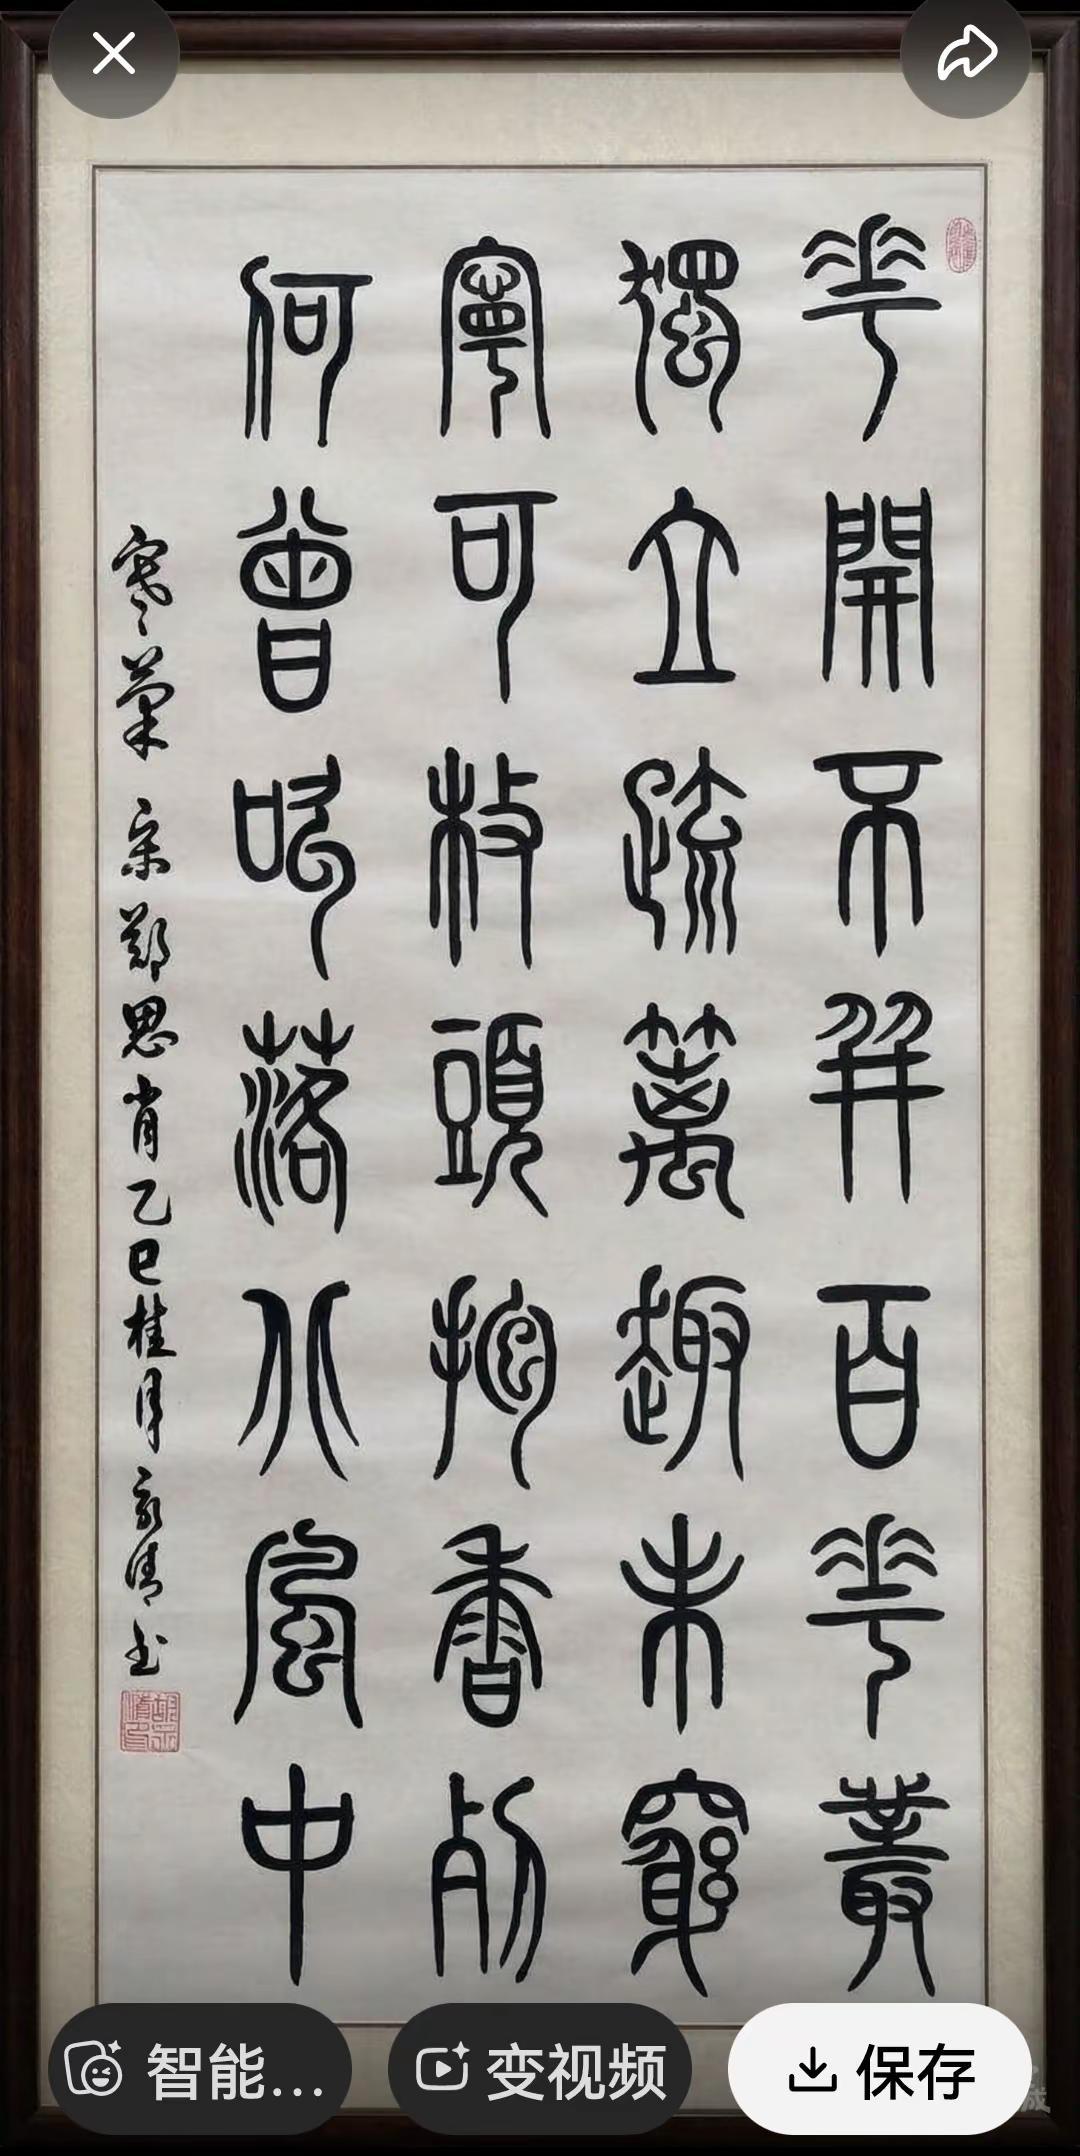 花開不并百花叢
獨立疏篱趣未窮
寧可枝頭抱香死
何曾吹落北風中
寒菊 宋鄭思肖乙巳桂月清书
智能...
变视频
保存